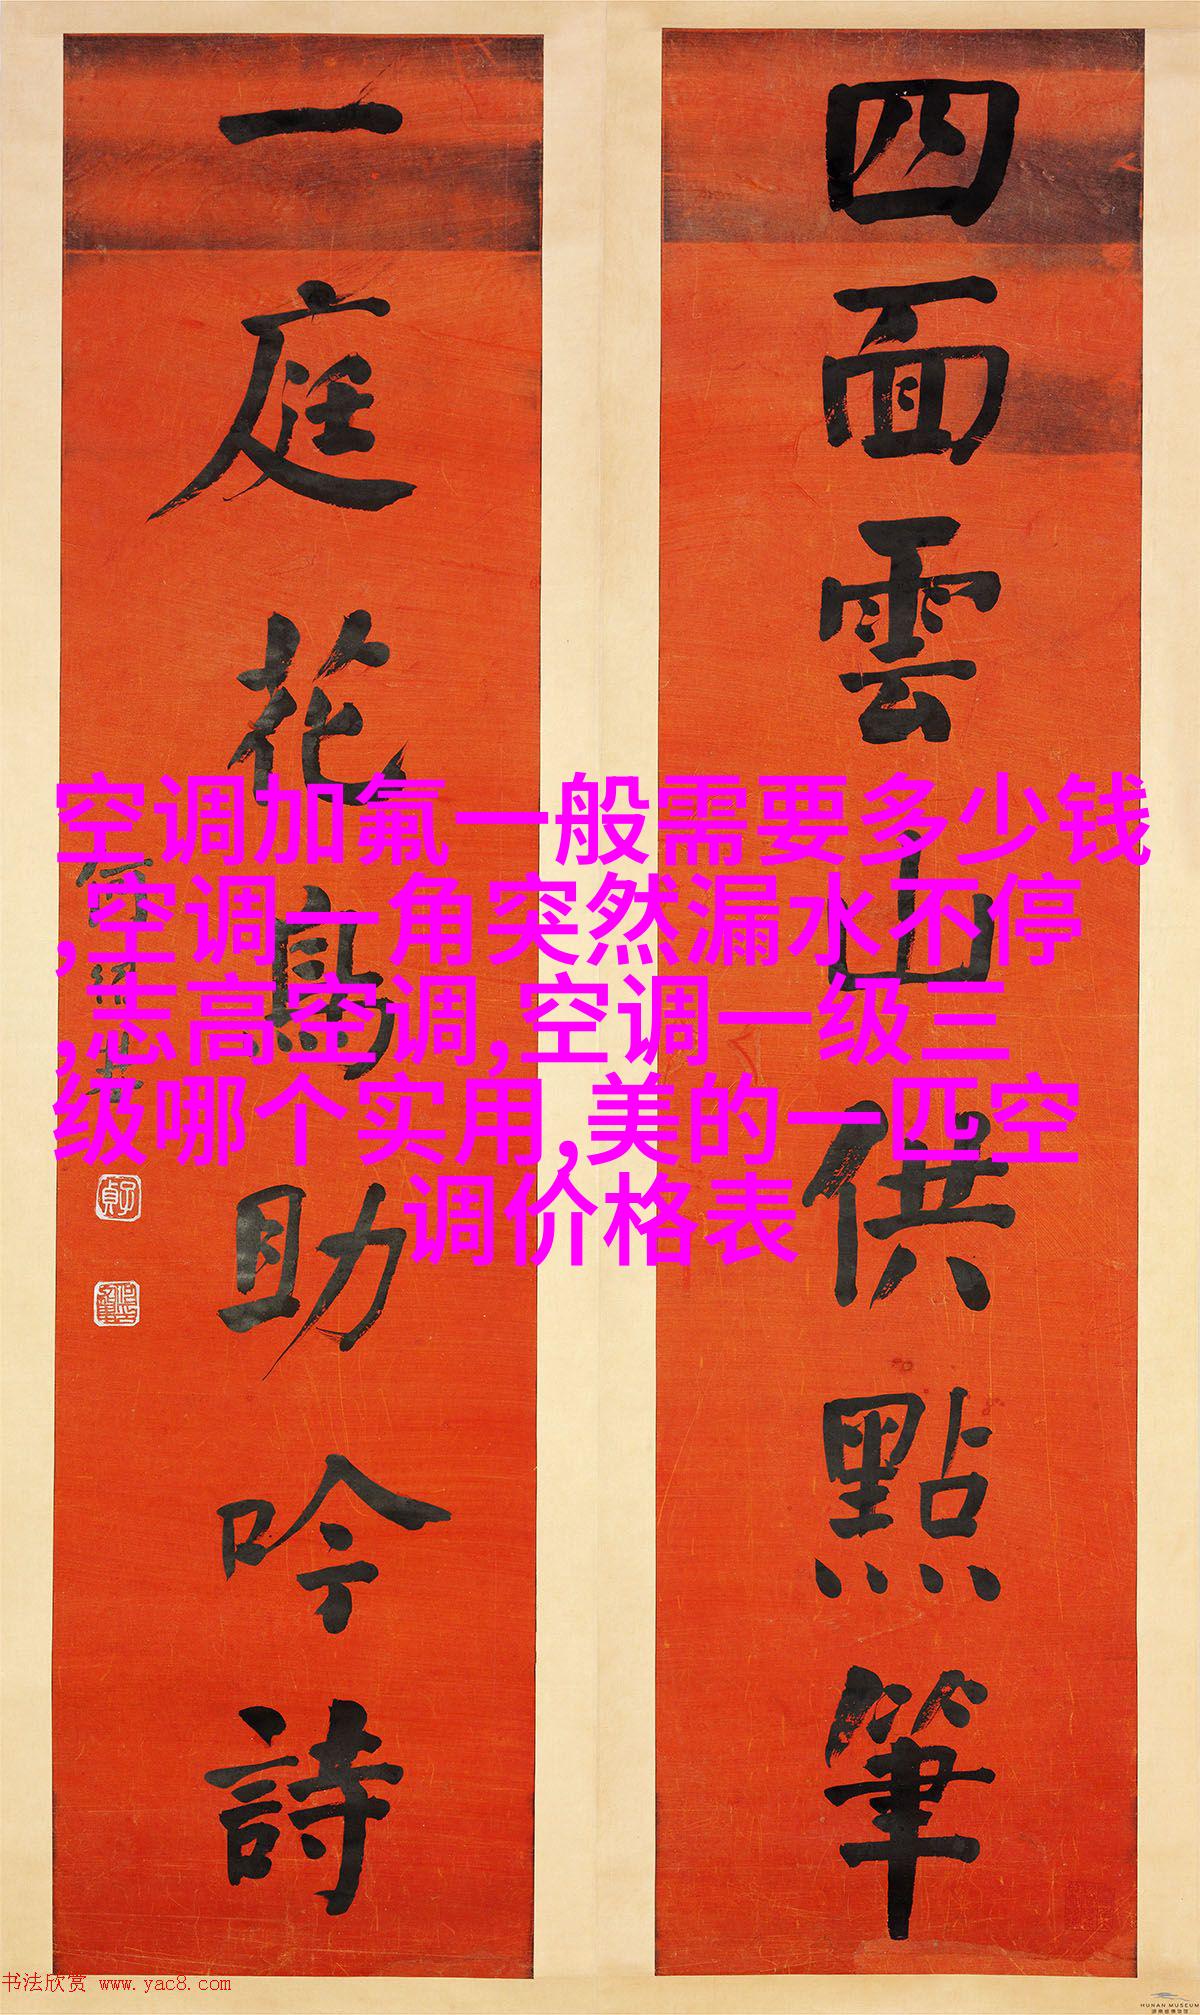 四面雲山供點筆
一庭花鳥助吟詩
空调加氟一般需要多少钱
,空调一角突然漏水不停
,志高空调,空调一级三
级哪个实用,美的一匹空
调价格表
书法欣赏 www.yac8.com
HUNAN MUSEUM